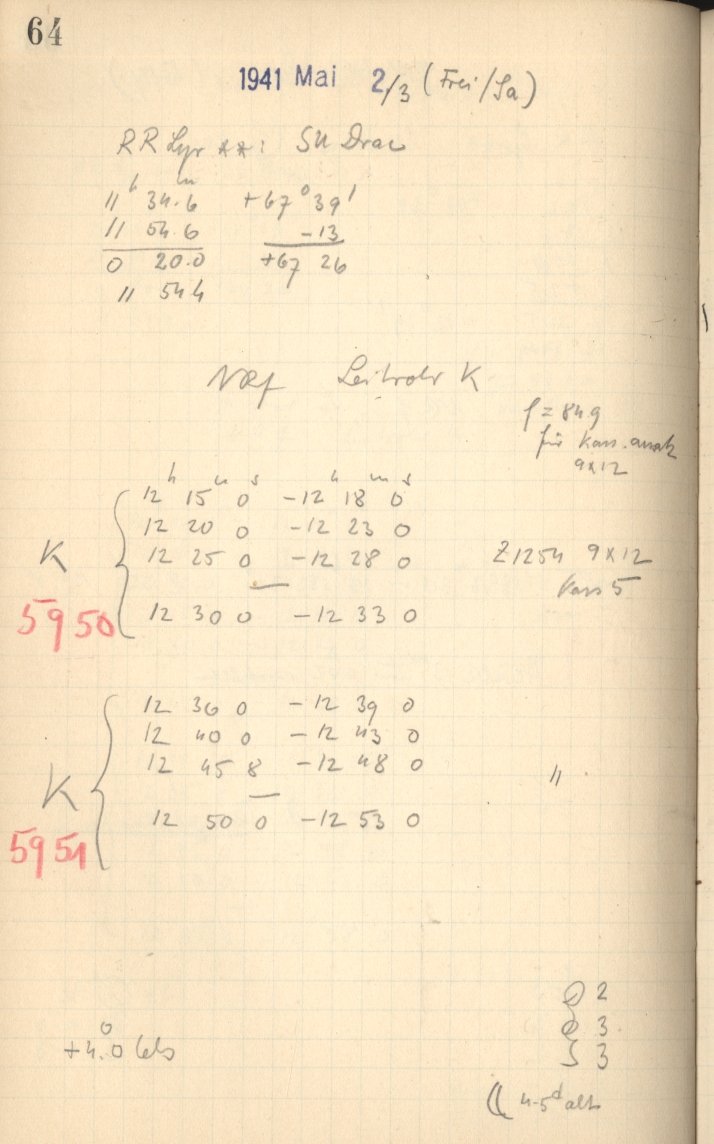 64
1941 Mai 2/3 (Frei/Sa)
RR Lyr **: SU Drac
11h 34.6m +67° 39'
11 54.6 -13
0 20.0 +67 26
11 54.4
Leitrohr K
f = 84.9
für Kass. ansatz
9x12
12h 15m 0s -12h 18m 0s
12 20 0 -12 23 0
12 25 0 -12 28 0
12 30 0 -12 33 0
K
5950
Z1254 9x12
Kass 5
12 36 0 -12 39 0
12 40 0 -12 43 0
12 45 8 -12 48 0
12 50 0 -12 53 0
K
5951
"
2
3
3
+4.°0 Cels
(( 4-5d alt